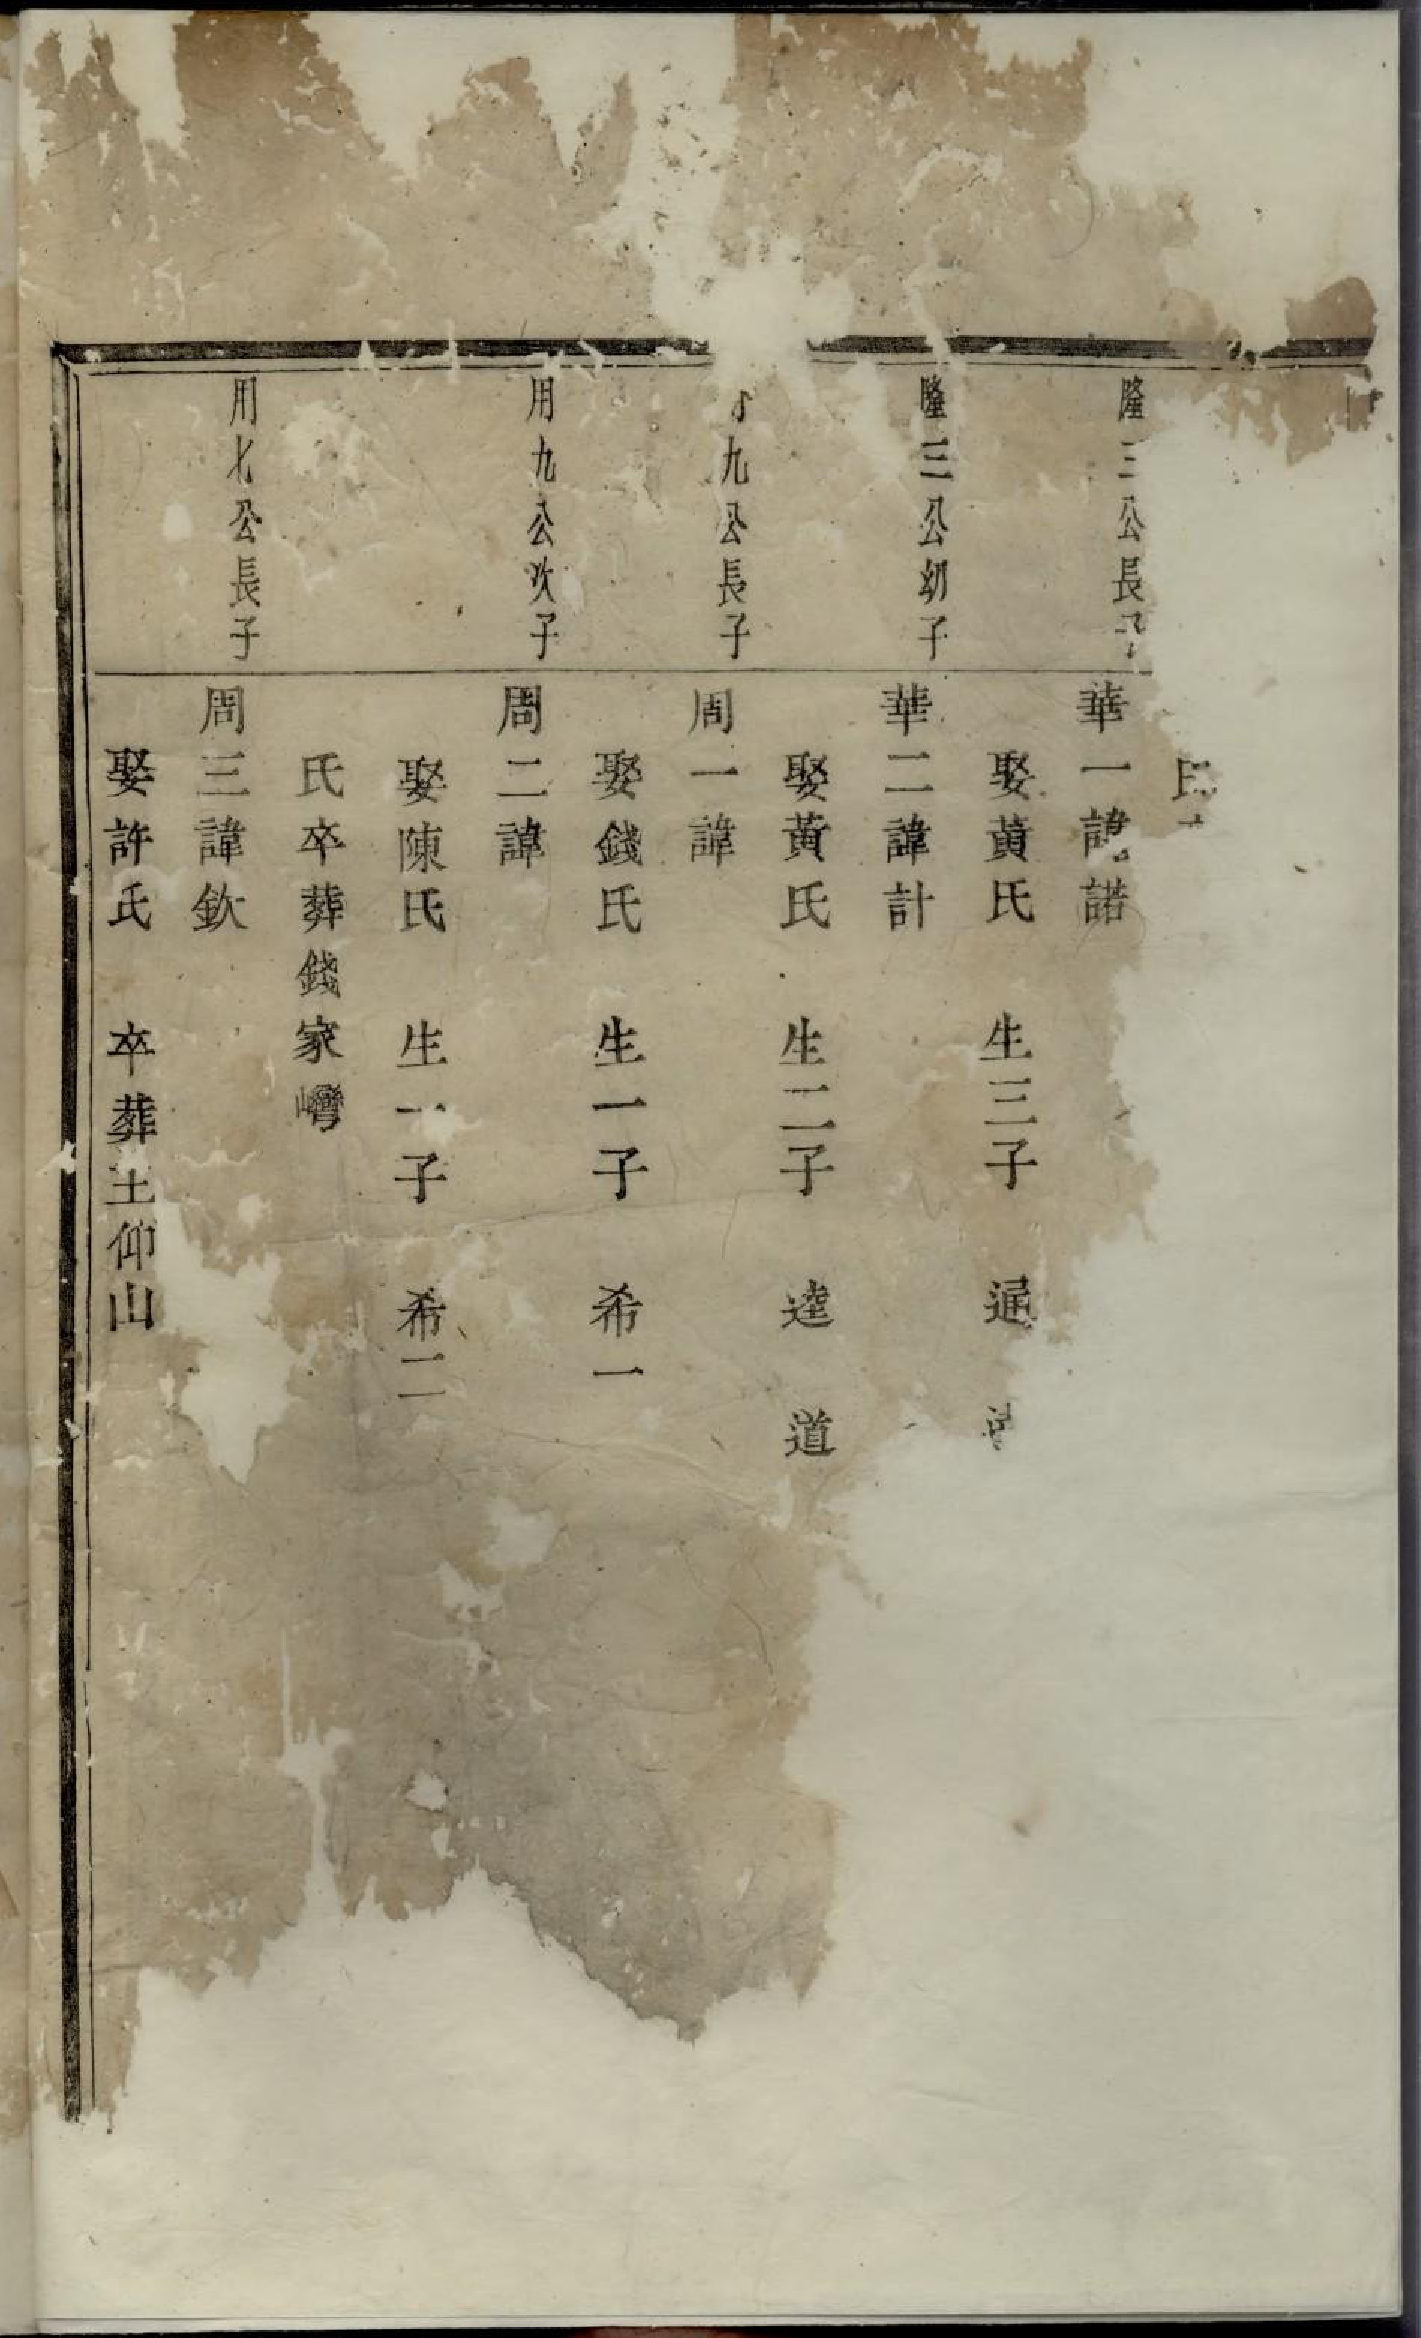 氏
隆三公長子
華一諱諾
娶黄氏 生三子 通
隆三公幼子
華二諱計
娶黄氏 生二子 達 道
九公長子
周一諱
娶錢氏 生一子 希一
用九公次子
周二諱
娶陳氏 生一子 希二
氏卒葬錢家灣
用七公長子
周三諱欽
娶許氏 卒葬王仰山